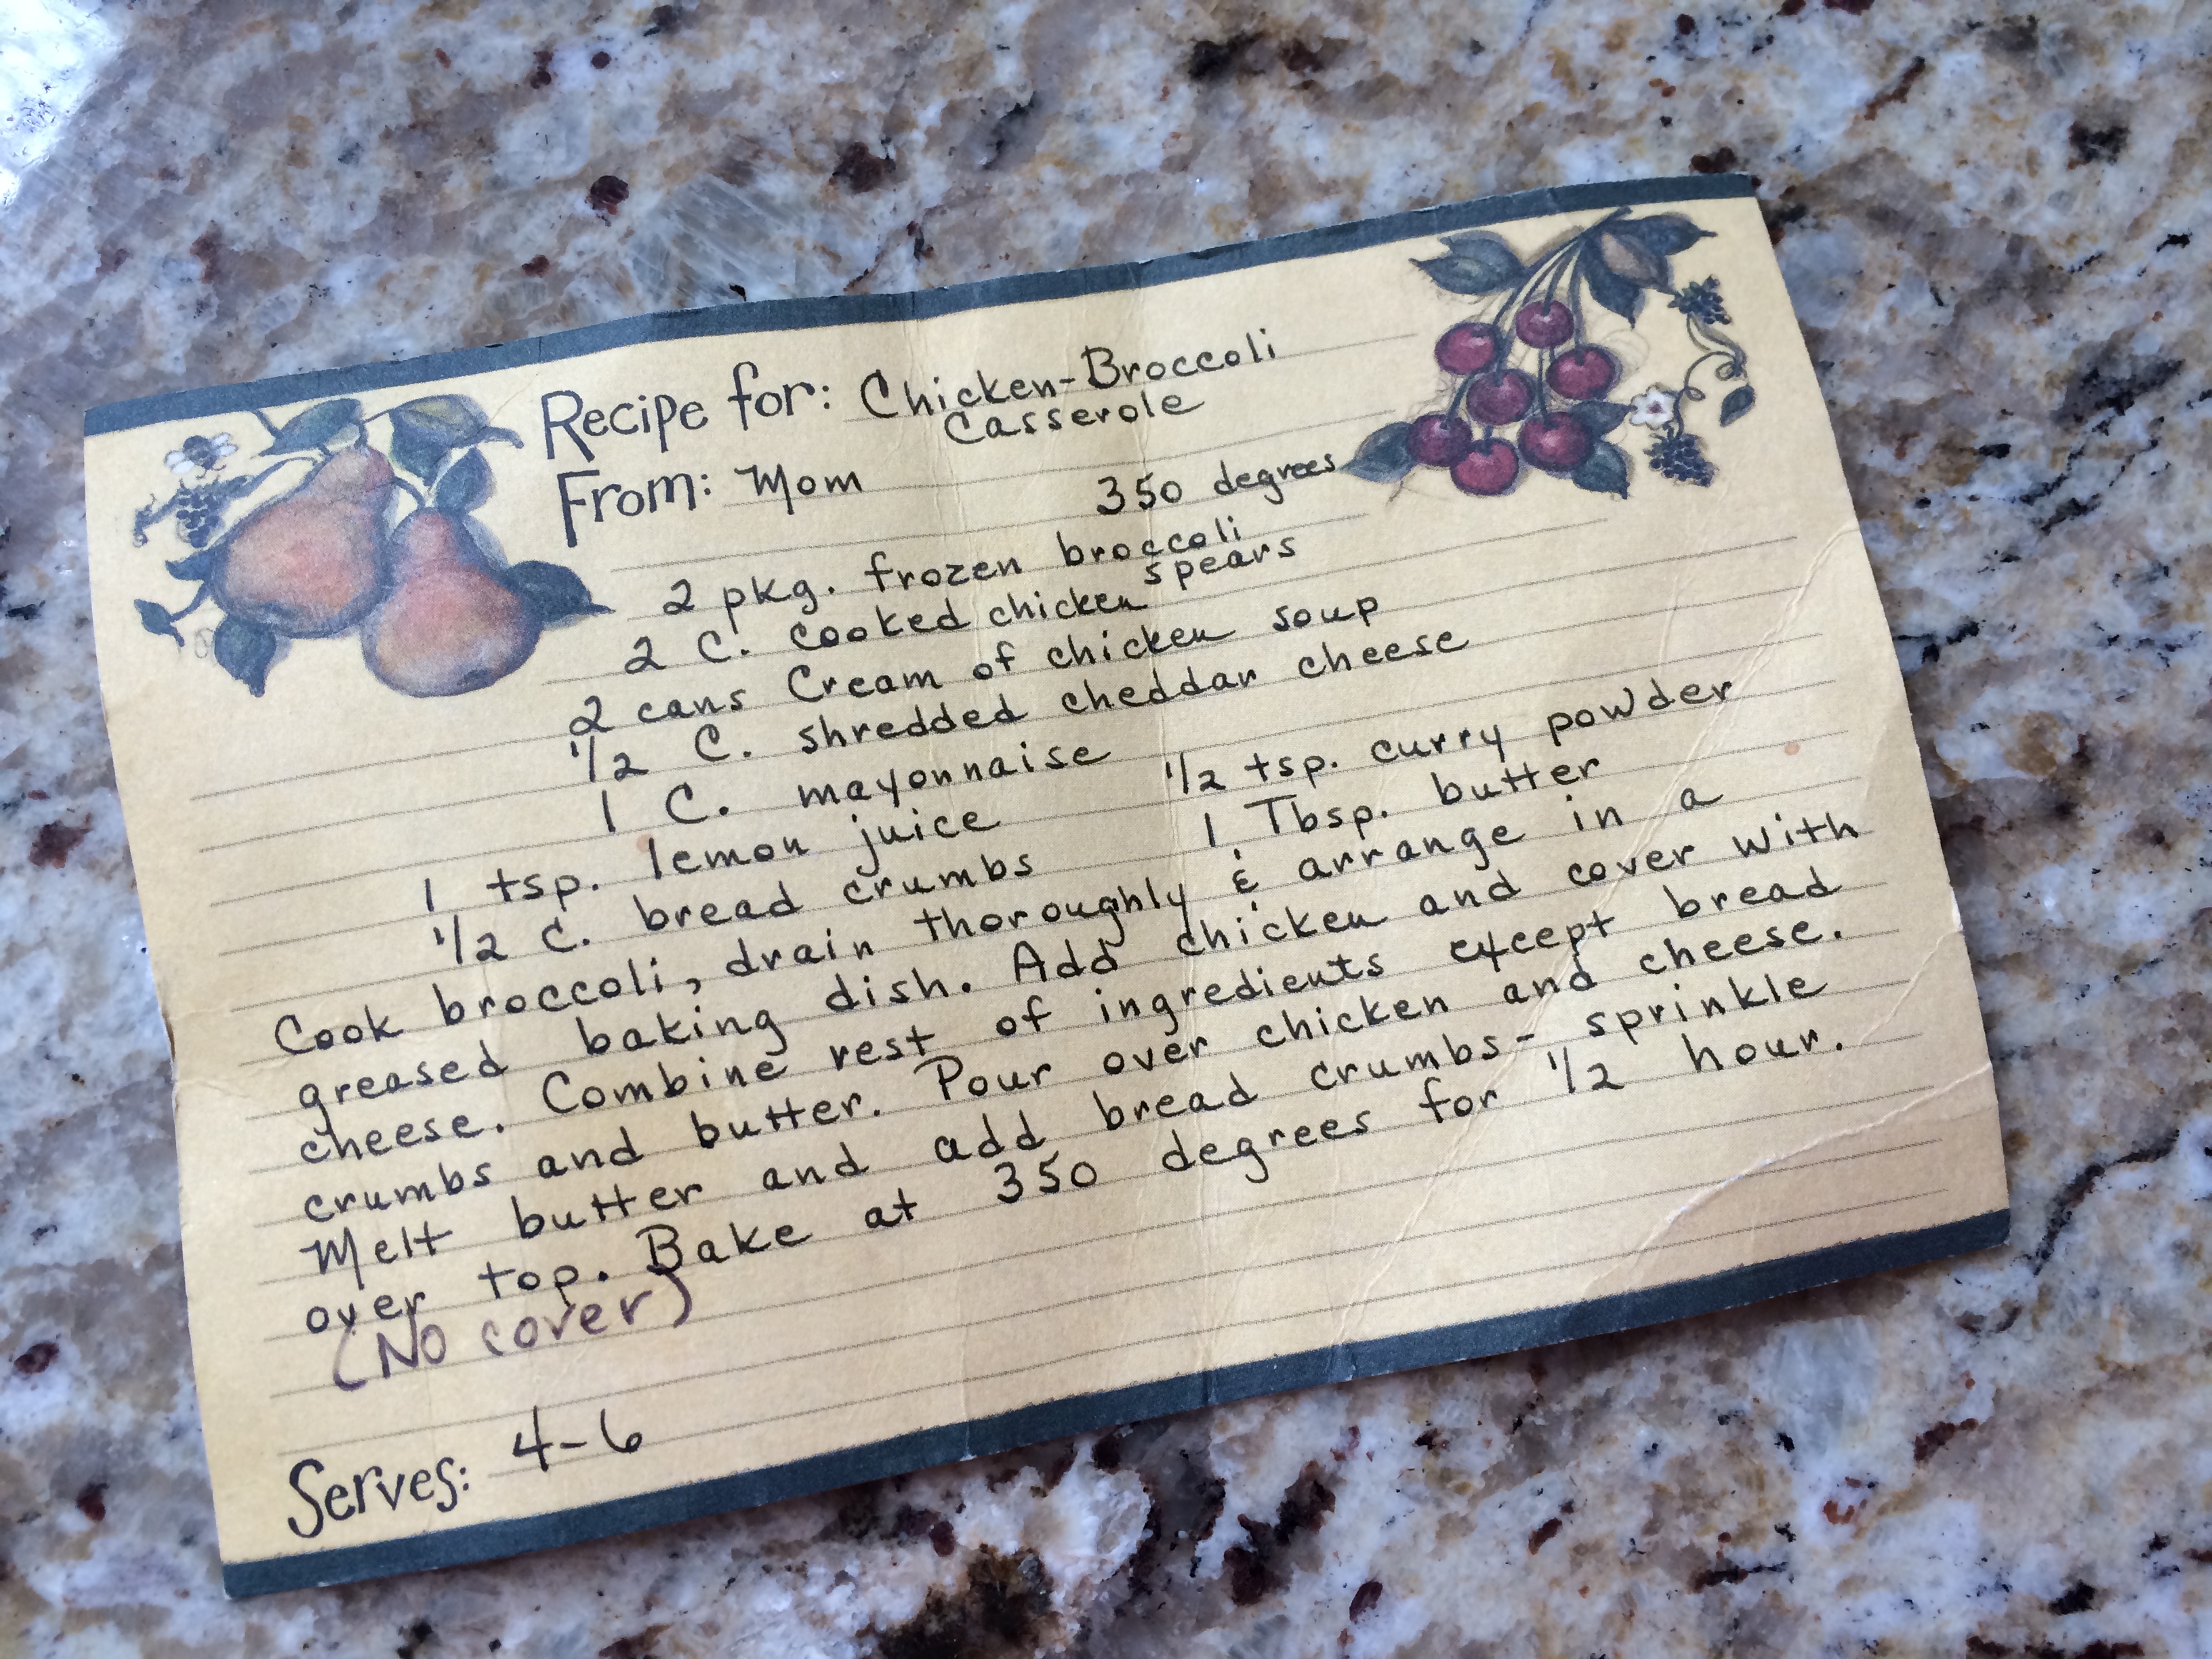 Recipe for: Chicken-Broccoli
Casserole
From: Mom
350 degrees
2 pkg. frozen broccoli
spears
2 C. cooked chicken
2 cans Cream of chicken soup
1/2 C. shredded cheddar cheese
1 C. mayonnaise 1/2 tsp. curry powder
1 tsp. lemon juice 1 Tbsp. butter
1/2 C. bread crumbs
Cook broccoli, drain thoroughly & arrange in a
greased baking dish. Add chicken and cover with
cheese. Combine rest of ingredients except bread
crumbs and butter. Pour over chicken and cheese.
Melt butter and add bread crumbs- sprinkle
over top. Bake at 350 degrees for 1/2 hour.
(No cover)
Serves: 4-6